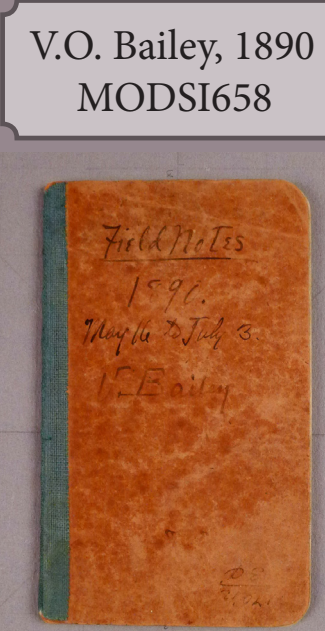 V.O. Bailey, 1890
MODSI658
Field Notes
1890.
May 16 to July 3.
V Bailey